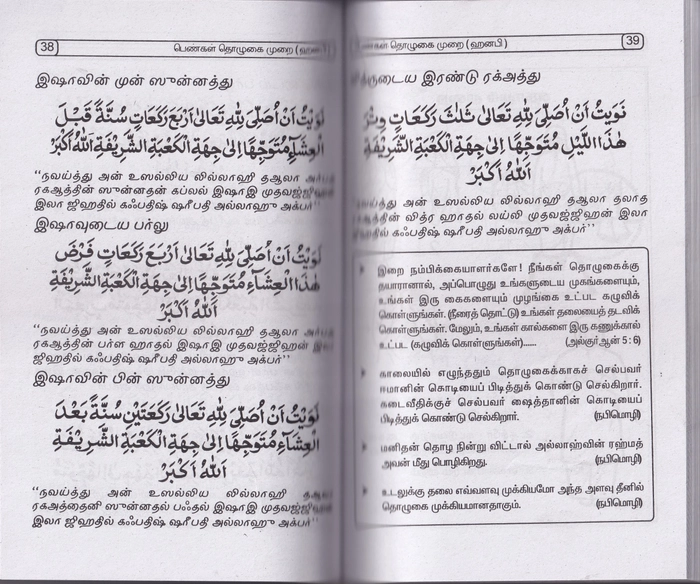 38
பெண்கள் தொழுகை முறை (ஹனபி)
இஷாவின் முன் ஸுன்னத்து
نَوَيْتُ اَنْ اُصَلِّىَ لِلّٰهِ تَعَالٰى اَرْبَعَ رَكَعَاتٍ سُنَّةً قَبْلَ
الْعِشَاءِ مُتَوَجِّهًا اِلٰى جِهَةِ الْكَعْبَةِ الشَّرِيْفَةِ اَللّٰهُ اَكْبَرُ
“நவய்த்து அன் உஸல்லிய லில்லாஹி தஆலா அர்பஅ
ரகஆத்தின் ஸுன்னதன் கப்லல் இஷாஇ முதவஜ்ஜி
இலா ஜிஹதில் கஃபதிஷ் ஷரீபதி அல்லாஹு அக்பர்”
இஷாவுடைய பர்லு
نَوَيْتُ اَنْ اُصَلِّىَ لِلّٰهِ تَعَالٰى اَرْبَعَ رَكَعَاتٍ فَرْضَ
هٰذَا الْعِشَاءِ مُتَوَجِّهًا اِلٰى جِهَةِ الْكَعْبَةِ الشَّرِيْفَةِ
اَللّٰهُ اَكْبَرُ
“நவய்த்து அன் உஸல்லிய லில்லாஹி தஆலா அர்பஅ
ரகஆத்தின் பர்ள ஹாதல் இஷாஇ முதவஜ்ஜிஹன் இலா
ஜிஹதில் கஃபதிஷ் ஷரீபதி அல்லாஹு அக்பர்”
இஷாவின் பின் ஸுன்னத்து
نَوَيْتُ اَنْ اُصَلِّىَ لِلّٰهِ تَعَالٰى رَكْعَتَيْنِ سُنَّةً بَعْدَ
الْعِشَاءِ مُتَوَجِّهًا اِلٰى جِهَةِ الْكَعْبَةِ الشَّرِيْفَةِ
اَللّٰهُ اَكْبَرُ
“நவய்த்து அன் உஸல்லிய லில்லாஹி தஆலா
ரகஅத்தைனி ஸுன்னதல் பஃதல் இஷாஇ முதவஜ்ஜிஹன்
இலா ஜிஹதில் கஃபதிஷ் ஷரீபதி அல்லாஹு அக்பர்”
பெண்கள் தொழுகை முறை (ஹனபி)
39
வித்ருடைய இரண்டு ரக்அத்து
نَوَيْتُ اَنْ اُصَلِّىَ لِلّٰهِ تَعَالٰى ثَلٰثَ رَكَعَاتٍ وِتْرَ
هٰذَا اللَّيْلِ مُتَوَجِّهًا اِلٰى جِهَةِ الْكَعْبَةِ الشَّرِيْفَةِ
اَللّٰهُ اَكْبَرُ
அன் உஸல்லிய லில்லாஹி தஆலா தலாத
வித்ர ஹாதல் லய்லி முதவஜ்ஜிஹன் இலா
ஜிஹதில் கஃபதிஷ் ஷரீபதி அல்லாஹு அக்பர்”
இறை நம்பிக்கையாளர்களே! நீங்கள் தொழுகைக்கு
தயாரானால், அப்பொழுது உங்களுடைய முகங்களையும்,
உங்கள் இரு கைகளையும் முழங்கை உட்பட கழுவிக்
கொள்ளுங்கள். (நீரைத் தொட்டு) உங்கள் தலையைத் தடவிக்
கொள்ளுங்கள். மேலும், உங்கள் கால்களை இரு கணுக்கால்
உட்பட (கழுவிக் கொள்ளுங்கள்)...... (அல்குர்ஆன் 5 : 6)
காலையில் எழுந்ததும் தொழுகைக்காகச் செல்பவர்
ஈமானின் கொடியைப் பிடித்துக் கொண்டு செல்கிறார்.
கடைவீதிக்குச் செல்பவர் ஷைத்தானின் கொடியைப்
பிடித்துக் கொண்டு செல்கிறார். (நபிமொழி)
மனிதன் தொழ நின்று விட்டால் அல்லாஹ்வின் ரஹ்மத்
அவன் மீது பொழிகிறது. (நபிமொழி)
உடலுக்கு தலை எவ்வளவு முக்கியமோ அந்த அளவு தீனில்
தொழுகை முக்கியமானதாகும். (நபிமொழி)